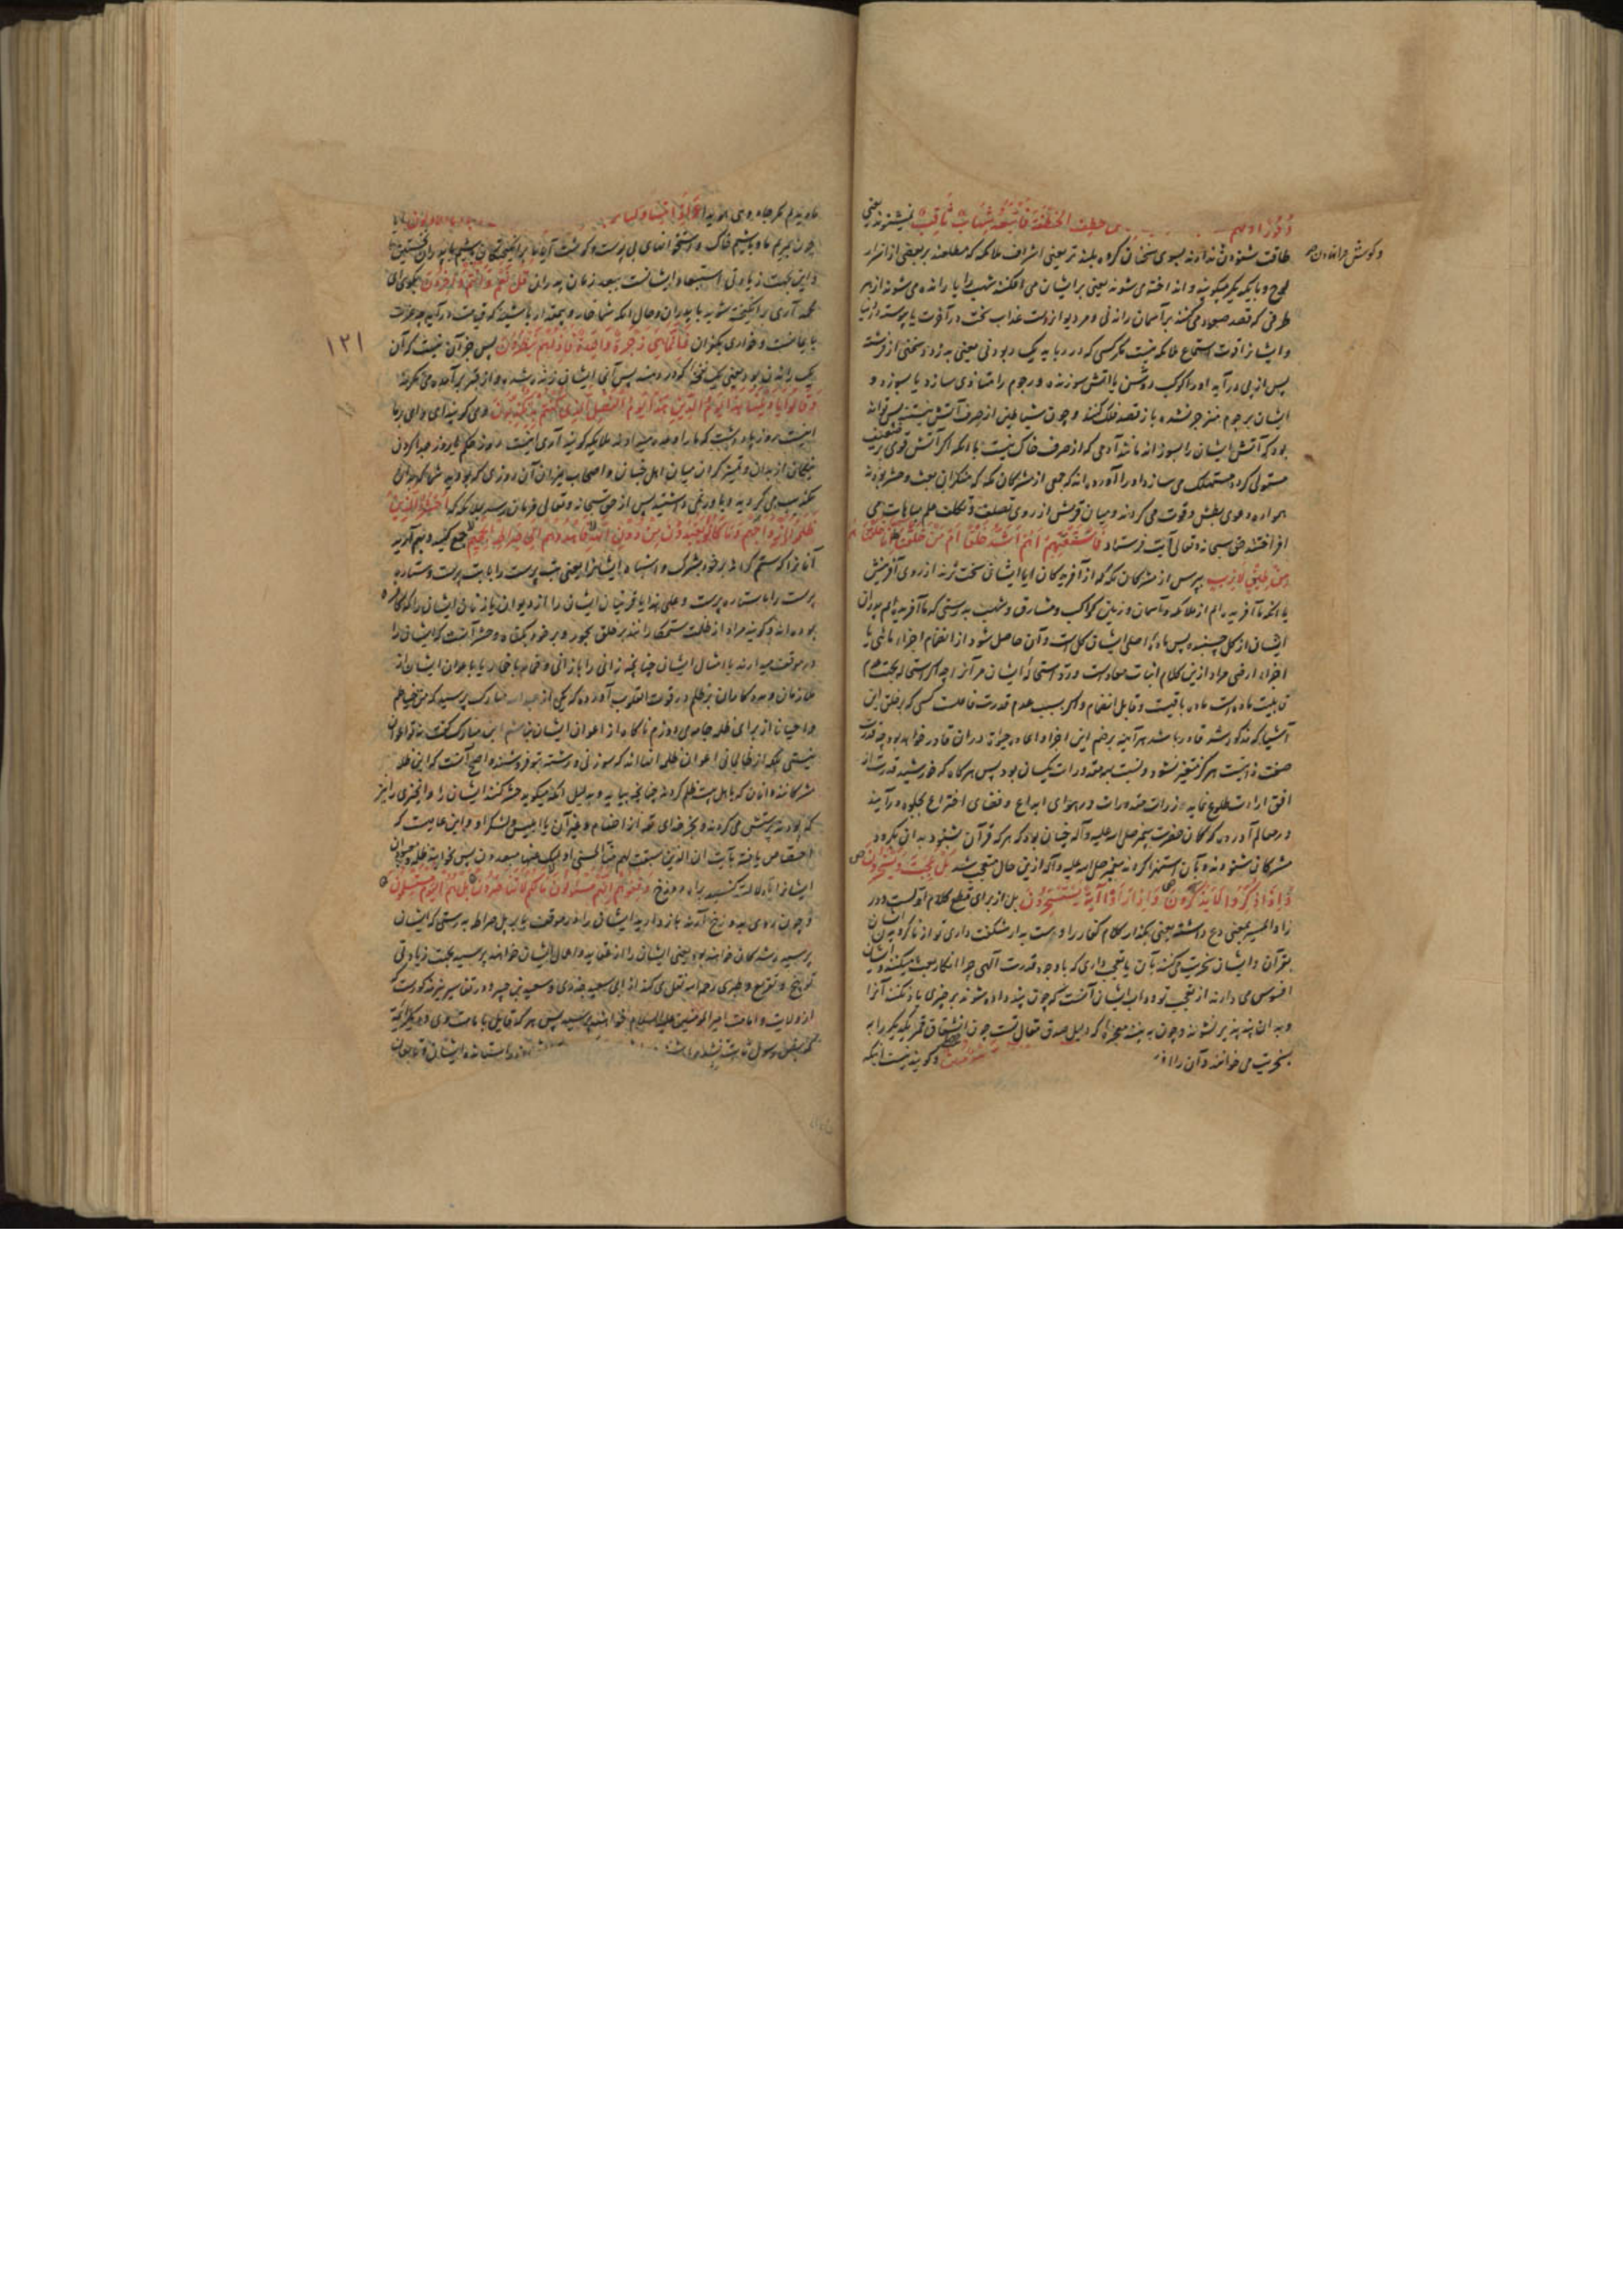 خطف الخطفة فاتبعه شهاب ثاقب نمیشنوند یعنی
طاقت شنودن ندارند بسوی سخنان گروه بلندتر یعنی اشراف ملائکه که مطلعند بر بعضی از اسرار
وگوش فرا نهادن
لوح و با یکدیگر میگویند و انداخته می شوند یعنی بر ایشان می افکنند شهب را یا رانده می شوند از هر
طرفی که قصد صعود می کنند بر آسمان راندنی و مر دیوانراست عذاب سخت در آخرت یا پیوسته در دنیا
و ایشانرا قوت استماع ملائکه نیست مگر کسی که در رباید یک ربودنی یعنی بدزدد سخنی از فرشته
پس از پی درآید او را کوکب روشن یا آتش سوزنده و رجوم را متاذی سازد یا بسوزد و
ایشان برجوم منزجر نشده باز قصد فلک کنند و چون شیاطین از صرف آتش نیستند پس تواند
بود که آتش ایشان را بسوزاند مانند آدمی که از صرف خاک نیست با آنکه اگر آتش قوی بر ضعیف
مستولی گردد مستهلک می سازد او را آورده اند که جمعی از مشرکان مکه که منکران بعث و حشر بودند
همواره دعوی بطش و قوت می کردند و میان قریش از روی تصلف و تکلف علم مباهات می
افراختند حق سبحانه و تعالی آیت فرستاد فاستفتهم اهم اشد خلقا ام من خلقنا انا خلقناهم
من طین لازب بپرس از مشرکان مکه که از آفریدگان ایا ایشان سخت ترند از روی آفرینش
یا آنکه ما آفریده ایم از ملائکه و آسمان و زمین و کواکب و مشارق و شهب بدرستی که ما آفریده ایم پدران
ایشان از گل چسبنده پس ماده اصلی ایشان گل است و آن حاصل شود از انضمام اجزاء مائی با
اجزاء ارضی مراد ازین کلام اثبات معاد است و رد استحاله ایشان مر آنرا چه اگر استحاله بجهت عدم
قابلیت ماده است ماده باقیست و قابل انضمام و اگر بسبب عدم قدرت فاعلست کسی که بر خلق این
اشیا که مذکور شد قادر باشد هر آینه بر ضم این اجزا و اعاده حیوة در ان قادر خواهد بود چه قدرت
صفت ذاتست هرگز متغیر نشود و نسبت بمقدورات یکسان بود پس هرگاه که خورشید قدرت از
افق ارادت طلوع نماید ذرات مقدورات در هوای ابداع و فضای اختراع بجلوه درآیند
در معالم آورده که گمان حضرت پیغمبر صلی الله علیه و آله چنان بود که هر که قرآن شنود بدان بگرود
مشرکان شنودند و بآن استهزا کردند پیغمبر صلی الله علیه و آله ازین حال متعجب شد بل عجبت و یسخرون
و اذا ذکروا لا یذکرون و اذا راوا آیة یستسخرون بل از برای قطع کلام اولست و در
زاد المسیر بمعنی دع داشته یعنی بگذار کلام کفار را و دست بدار شگفت داری تو از ناگرویدن ایشان
بقرآن و ایشان سخریت می کنند بآن یا تعجب داری که با وجود قدرت آلهی چرا انکار بعث میکنند و ایشان
افسوس می دارند از تعجب تو و داب ایشان آنست که چون پند داده شوند بر چیزی یاد نکنند آنرا
و بدان پند پذیر نشوند و چون ببینند معجزه که دلیل صدق مقال تست چون انشقاق قمر یکدیگر را به
سخریت می خوانند و آن را و گویند نیست اینکه
ما دیدیم مگر جادوی هویدا ءاذا متنا و کنا
چون بمیریم ما و باشیم خاک و استخوانهای بی پوست و گوشت آیا ما برانگیختگان باشیم یا پدران نخستین ما
و این بجهت زیادتی استبعاد ایشانست ببعد زمان پدران قل نعم و انتم داخرون بگوی ای
محمد آری برانگیخته شوید با پدران و حال آنکه شما خوار و بیمقدار باشید که قیامت درآید چه عزت
با ایمانست و خواری بکفران فانما هی زجرة واحدة فاذا هم ینظرون پس جز آن نیست که آن
یک راندن بود یعنی یک نفخه که در دمند پس آنی ایشان زنده شده و از قبر برآمده می نگرند
و قالوا یا ویلنا هذا یوم الدین هذا یوم الفصل الذی کنتم به تکذبون و می گویند ای وای بر ما
اینست روز پاداشت که ما را وعده میدادند ملائکه گویند آری اینست روز حکم یا روز جدا کردن
نیکان از بدان و تمیز کردن میان اهل جنان و اصحاب نیران آن روزی که بودید شما که بدان
تکذیب می کردید و باور نمی داشتید پس از حق سبحانه و تعالی فرمان رسد بملائکه که احشروا الذین
ظلموا و ازواجهم و ما کانوا یعبدون من دون الله فاهدوهم الی صراط الجحیم جمع کنید و بهم آرید
آنانرا که ستم کردند بر خود بشرک و اشباه ایشانرا یعنی بت پرست را با بت پرست و ستاره
پرست را با ستاره پرست و علی هذا یا قرینان ایشان را از دیوان یا زنان ایشان را که کافره
بوده اند و گویند مراد از ظلمه ستمکارانند بر خلق بجور و بر خود بگناه و حشر آنست که ایشان را
در موقف میدارند با امثال ایشان چنانچه زانی را با زانی و خمار با خمار یا با اعوان ایشان از
ملازمان و مددکاران بر ظلم در قوت القلوب آورده که یکی از عبدالله مبارک پرسید که من خیاطم
و احیانا از برای ظلمه جامه می دوزم ناگاه از اعوان ایشان نباشم ابن مبارک گفت نه تو اعوان
نیستی بلکه از ظالمانی اعوان ظلمه آنانند که سوزن و رشته بتو فروشند و اصح آنست که این ظلمه
مشرکانند و آنان که با اهل بیت ظلم کردند چنانچه بیاید و بدلیل آنکه میگوید حشر کنند ایشان را و آنچیزی را نیز
که بودند پرستش می کردند و بجز خدای تعه از اصنام و غیر آن یا ابلیس و لشکر او و این عامیست که
اختصاص یافته بآیت ان الذین سبقت لهم منا الحسنی اولئک عنها مبعدون پس بخوانید ظلمه و معبودان
ایشانرا و دلالت کنید براه دوزخ و قفوهم انهم مسئولون ما لکم لا تناصرون بل هم الیوم مستسلمون
و چون روی بدوزخ آرند باز دارید ایشان را در موقف یا بر پل صراط بدرستی که ایشان
پرسیده شدگان خواهند بود یعنی ایشان را از عقاید و اعمال ایشان خواهند پرسید بجهت زیادتی
توبیخ و تقریع و طبری رحمه الله نقل می کند از ابی سعید خدری و سعید بن جبیر و در تفاسیر نیز مذکورست که
از ولایت و امامت امیرالمؤمنین علیه السلام خواهند پرسید پس هر که قایل بامامت وی و دیگر ائمه
١٢١